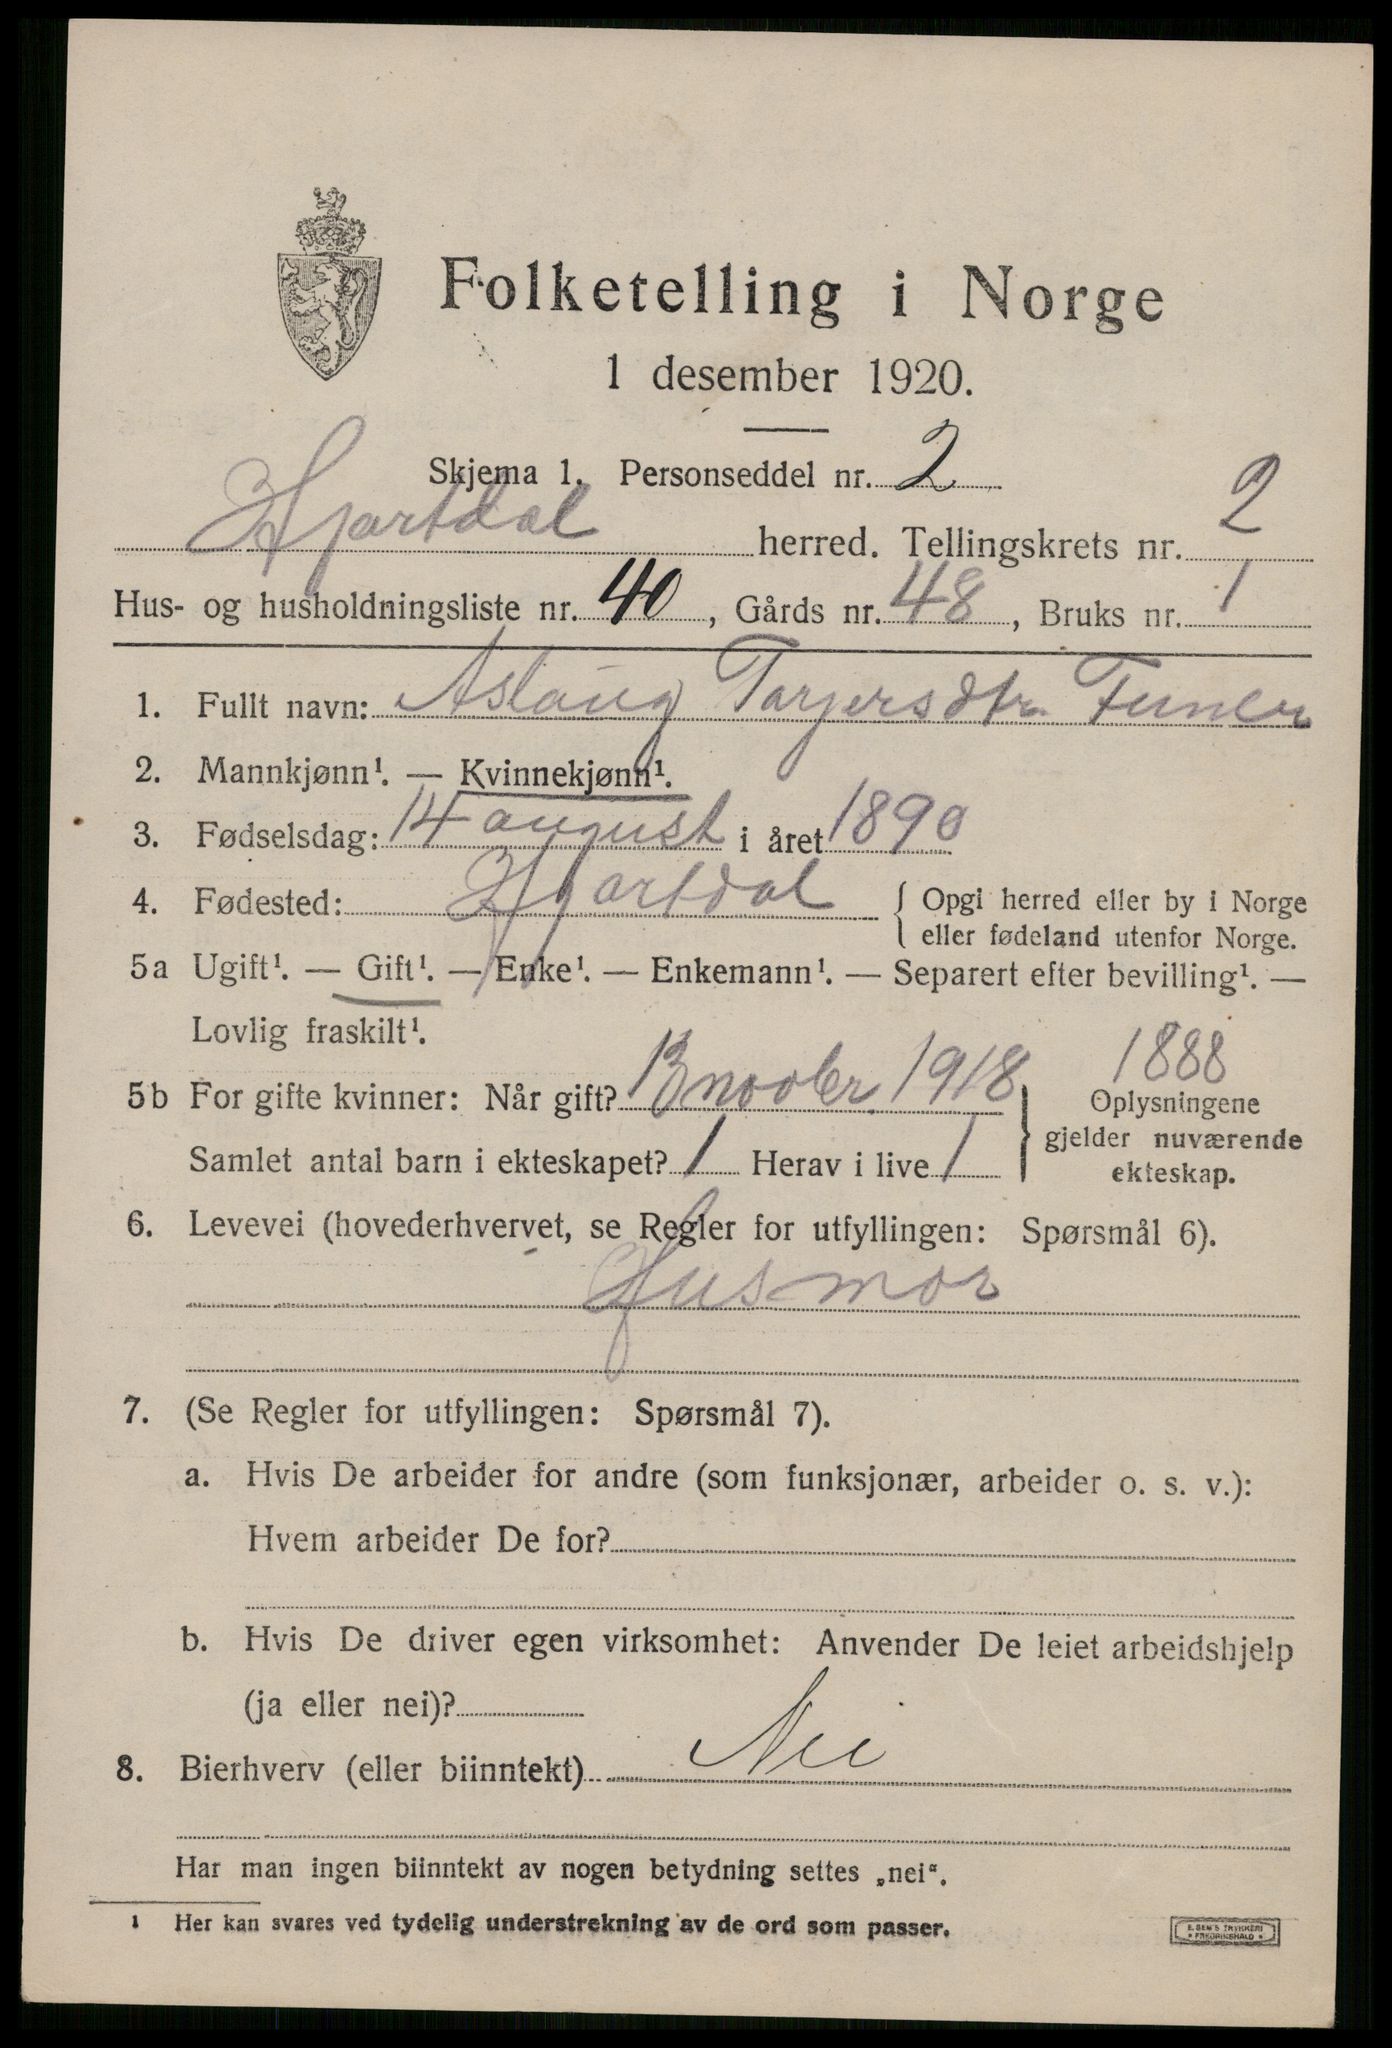 Folketelling i Norge
1 desember 1920.
Skjema 1. Personseddel nr. 2
Hjartdal herred. Tellingskrets nr. 2
Hus- og husholdningsliste nr. 40, Gårds nr. 48, Bruks nr. 1
1. Fullt navn: Aslaug Tarjersdtr.
2. Mannkjønn¹. — Kvinnekjønn¹.
3. Fødselsdag: 14 august i året 1890
4. Fødested: Hjartdal { Opgi herred eller by i Norge
eller fødeland utenfor Norge.
5a Ugift¹. — Gift¹. — Enke¹. — Enkemann¹. — Separert efter bevilling¹. —
Lovlig fraskilt¹.
1888
5b For gifte kvinner: Når gift? 13 novbr. 1918 } Oplysningene
gjelder nuværende
Samlet antal barn i ekteskapet? 1 Herav i live 1
ekteskap.
6. Levevei (hovederhvervet, se Regler for utfyllingen: Spørsmål 6).
Husmor
7. (Se Regler for utfyllingen: Spørsmål 7).
a. Hvis De arbeider for andre (som funksjonær, arbeider o. s. v.):
Hvem arbeider De for?
b. Hvis De driver egen virksomhet: Anvender De leiet arbeidshjelp
(ja eller nei)?
8. Bierhverv (eller biinntekt) Nei
Har man ingen biinntekt av nogen betydning settes „nei“.
1 Her kan svares ved tydelig understrekning av de ord som passer.
E. SEM'S TRYKKERI
* FREDRIKSHALD *